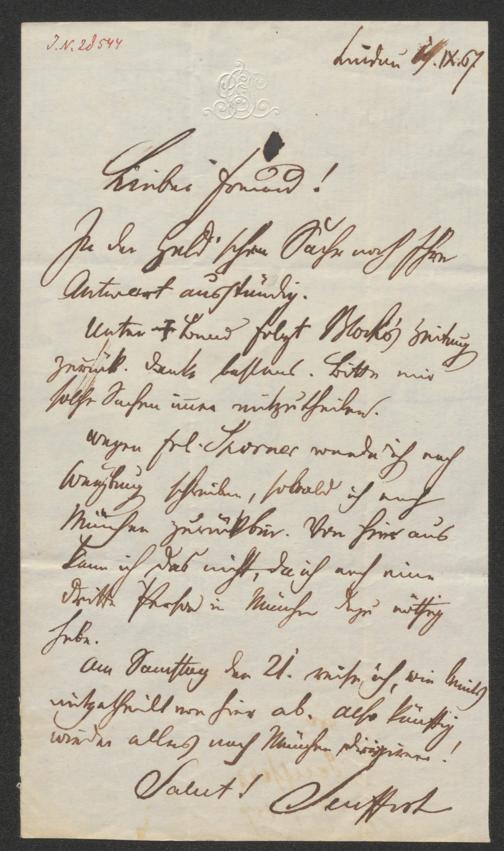 J.N. 28544
Lindau 19.IX.67
Lieber Freund!
In der Held'schen Sache noch Ihre
Antwort ausständig.
Unter + Band folgt Block's Zeitung
zurück. Danke bestens. Bitte mir
solche Sachen immer mitzutheilen.
Wegen Frl. werde ich nach
Würzburg schreiben, sobald ich nach
München zurück bin. Von hier aus
kann ich das nicht, da ich noch eine
dritte Person in München dazu nöthig
habe.
Am Samstag den 21. reise ich, wie bereits
mitgetheilt von hier ab. Also künftig
wieder alles nach München dirigiren!
Salut! Seuffert